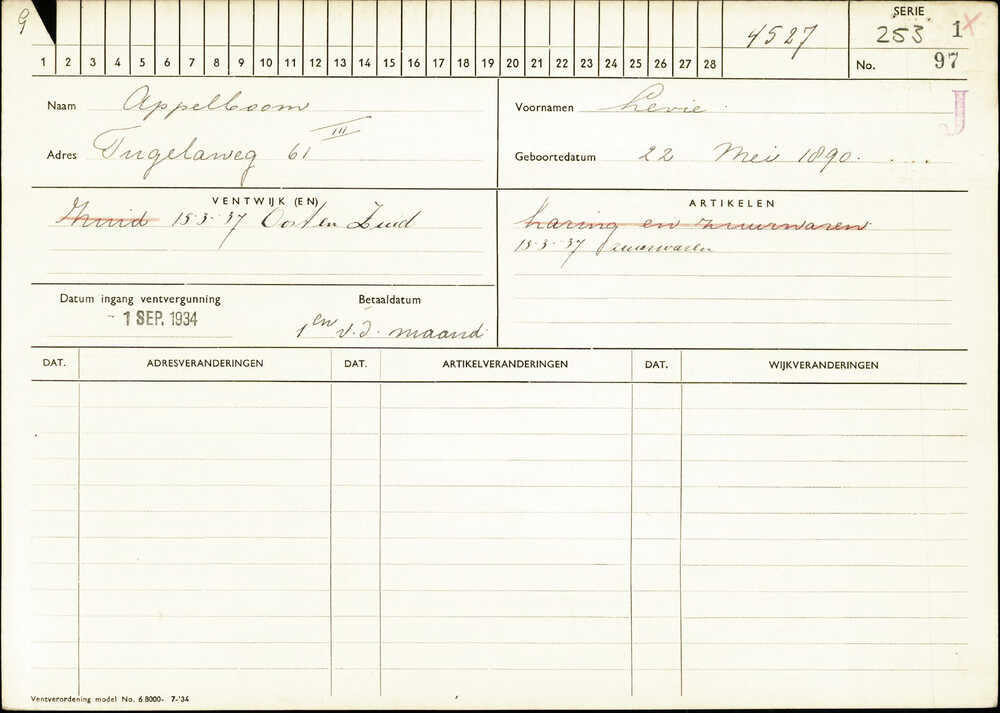 9
4527
SERIE
253 1 X
1 2 3 4 5 6 7 8 9 10 11 12 13 14 15 16 17 18 19 20 21 22 23 24 25 26 27 28
No. 97
J
Naam Appelboom
Voornamen Levie
Adres Tugelaweg 61 III
Geboortedatum 22 Mei 1890.
VENTWIJK (EN)
Zuid 15-3-37 Oost en Zuid
ARTIKELEN
haring en zuurwaren
15-3-37 zuurwaren
Datum ingang ventvergunning
- 1 SEP. 1934
Betaaldatum
1en v.d. maand
DAT. ADRESVERANDERINGEN DAT. ARTIKELVERANDERINGEN DAT. WIJKVERANDERINGEN
Ventverordening model No. 6.8000- 7-'34